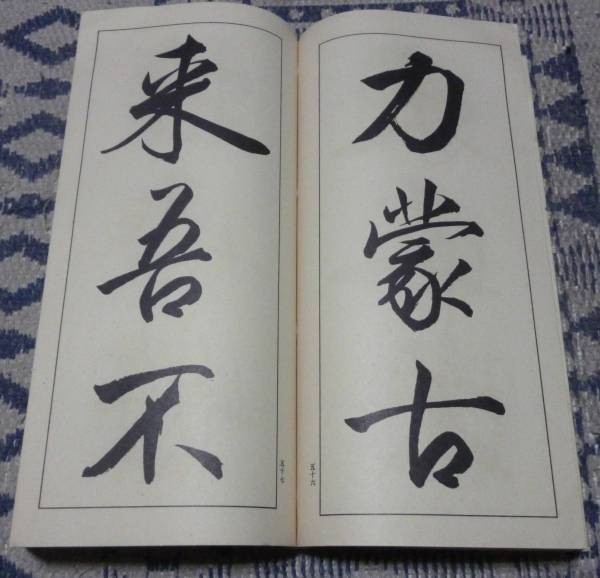 力蒙古
五十六
来吾不
五十七